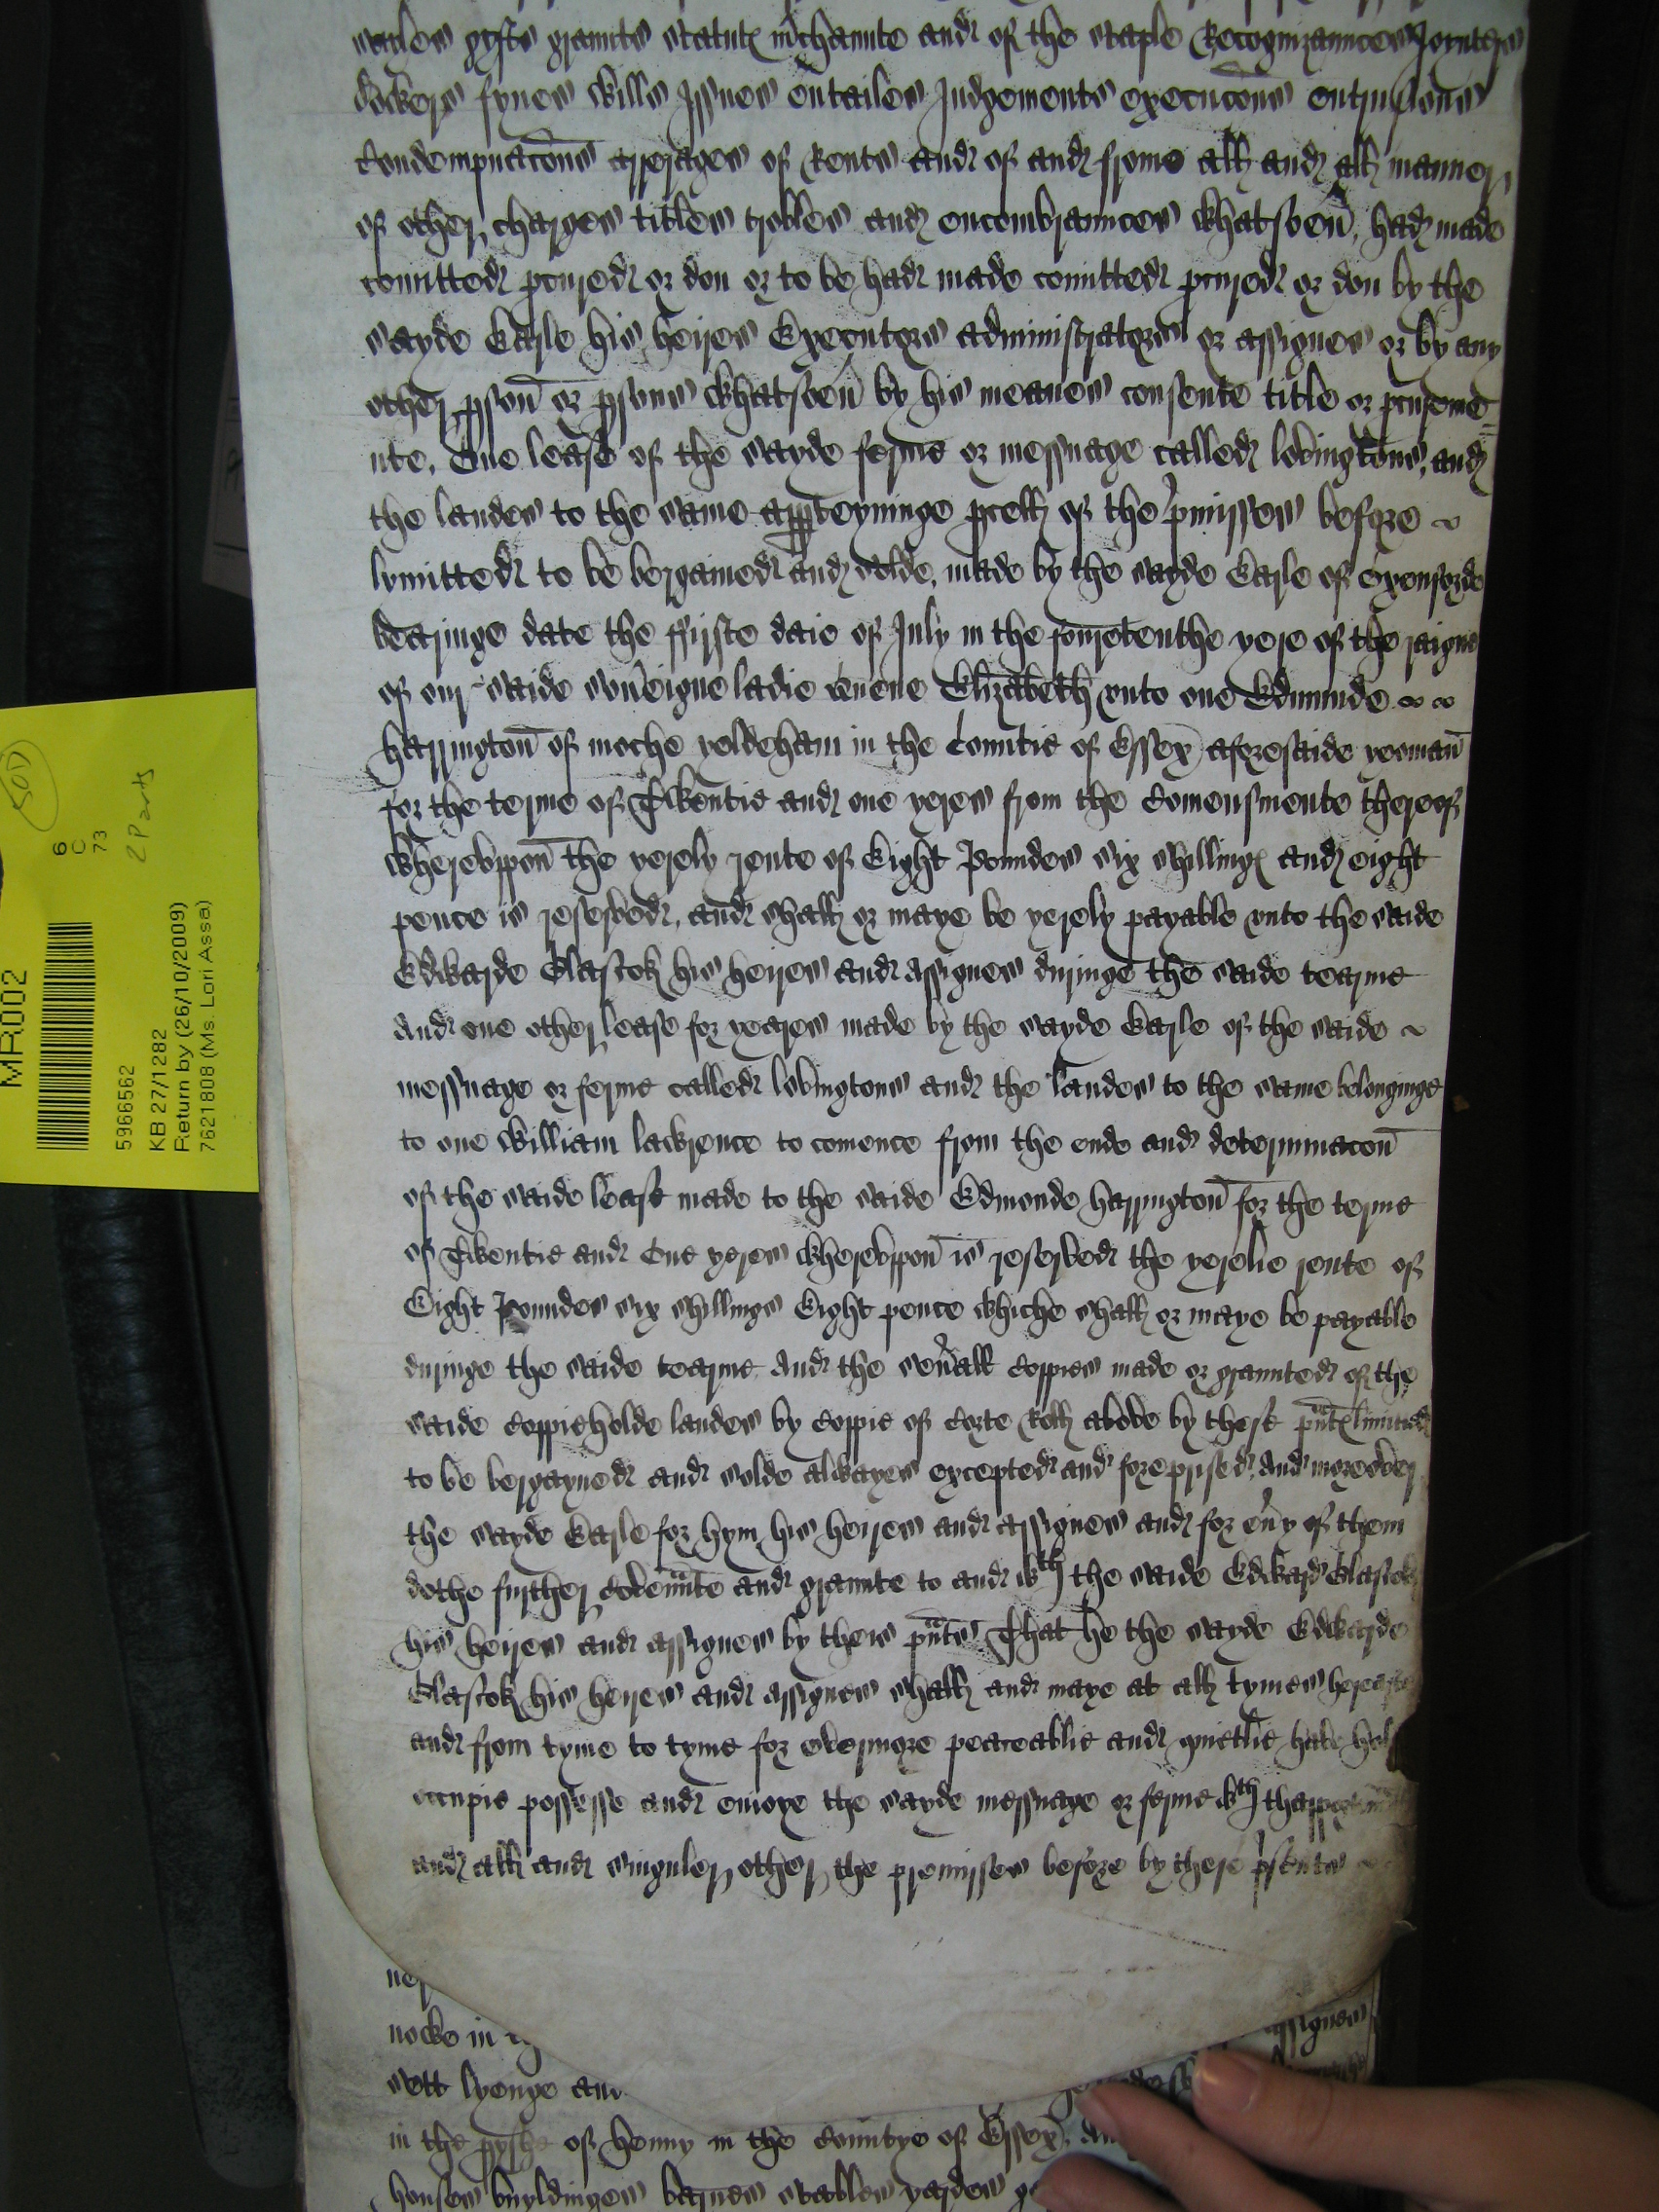 sayles gyfts graunts statut mchaunte and of the staple Recognizaunces Joynters
dowers fynes wills Issues entailes Judgements execucons entrusions
Condempnacons arrerages of Rents and of and frome all and all manner
of other charges titles trobles and encombraunces whatsoeu, had made
comitted pcured or don or to be had made comitted pcured or don by the
sayde Earle his heires Executors administrators or assignes or by any
other pson or psons whatsoeu by his meanes consente title or pcureme
nte, One lease of the sayde ferme or messuage called lovingtons, and
the landes to the same apperteyninge pcell of the pmisses before
lymitted to be bergained and solde, made by the sayde Earle of Oxenforde
bearinge date the ffirste daie of July in the fouretenthe yere of the raigne
of our saide soueigne ladie quene Elizabeth vnto one Edmunde
harrington of moche yeldeham in the Countie of Essex aforesaide yeoman
for the terme of Twentie and one yeres from the Comensmente thereof
wherevppon the yerely rente of Eight Poundes six shilling and eight
pence is reserved, and shall or maye be yerely payable vnto the saide
Edwarde Glascok his heires and assignes duringe the saide tearme
And one other lease for yeares made by the sayde Earle of the saide
messuage or ferme called lovingtons and the landes to the same belonginge
to one William lawrence to comence from the ende and determinacon
of the saide lease made to the saide Edmonde harrington for the terme
of Twentie and One yeres wherevppon is reserved the yerelie rente of
Eight Poundes six shillings Eight pence whiche shall or maye be payable
duringe the saide tearme And the seuall Coppies made or graunted of the
saide Coppieholde landes by Coppie of Corte Roll above by these pnts limited
to be bergayned and solde alwayes excepted and foreprised, And moreover
the sayde Earle for hym his heires and assignes and for euy of them
dothe further Covennte and graunte to and wth the saide Edward Glascok
his heires and assignes by theis pnts That he the sayde Edwarde
Glascok his heires and assignes shall and maye at all tymes hereafte
and from tyme to tyme for evermore peaceablie and quietlie have hol
occupie possesse and enioye the sayde messuage or ferme wth
and all and singuler other the premisses before by these psents
nowe in
sett lyenge and
in the pyshe of henny in the Countye of Essex, An
houses buyldinges barnes stables yardes
assignes
MR002
5966562
KB 27/1282
Return by (26/10/2009)
7621808 (Ms. Lori Assa)
6
C
73
2 Parts